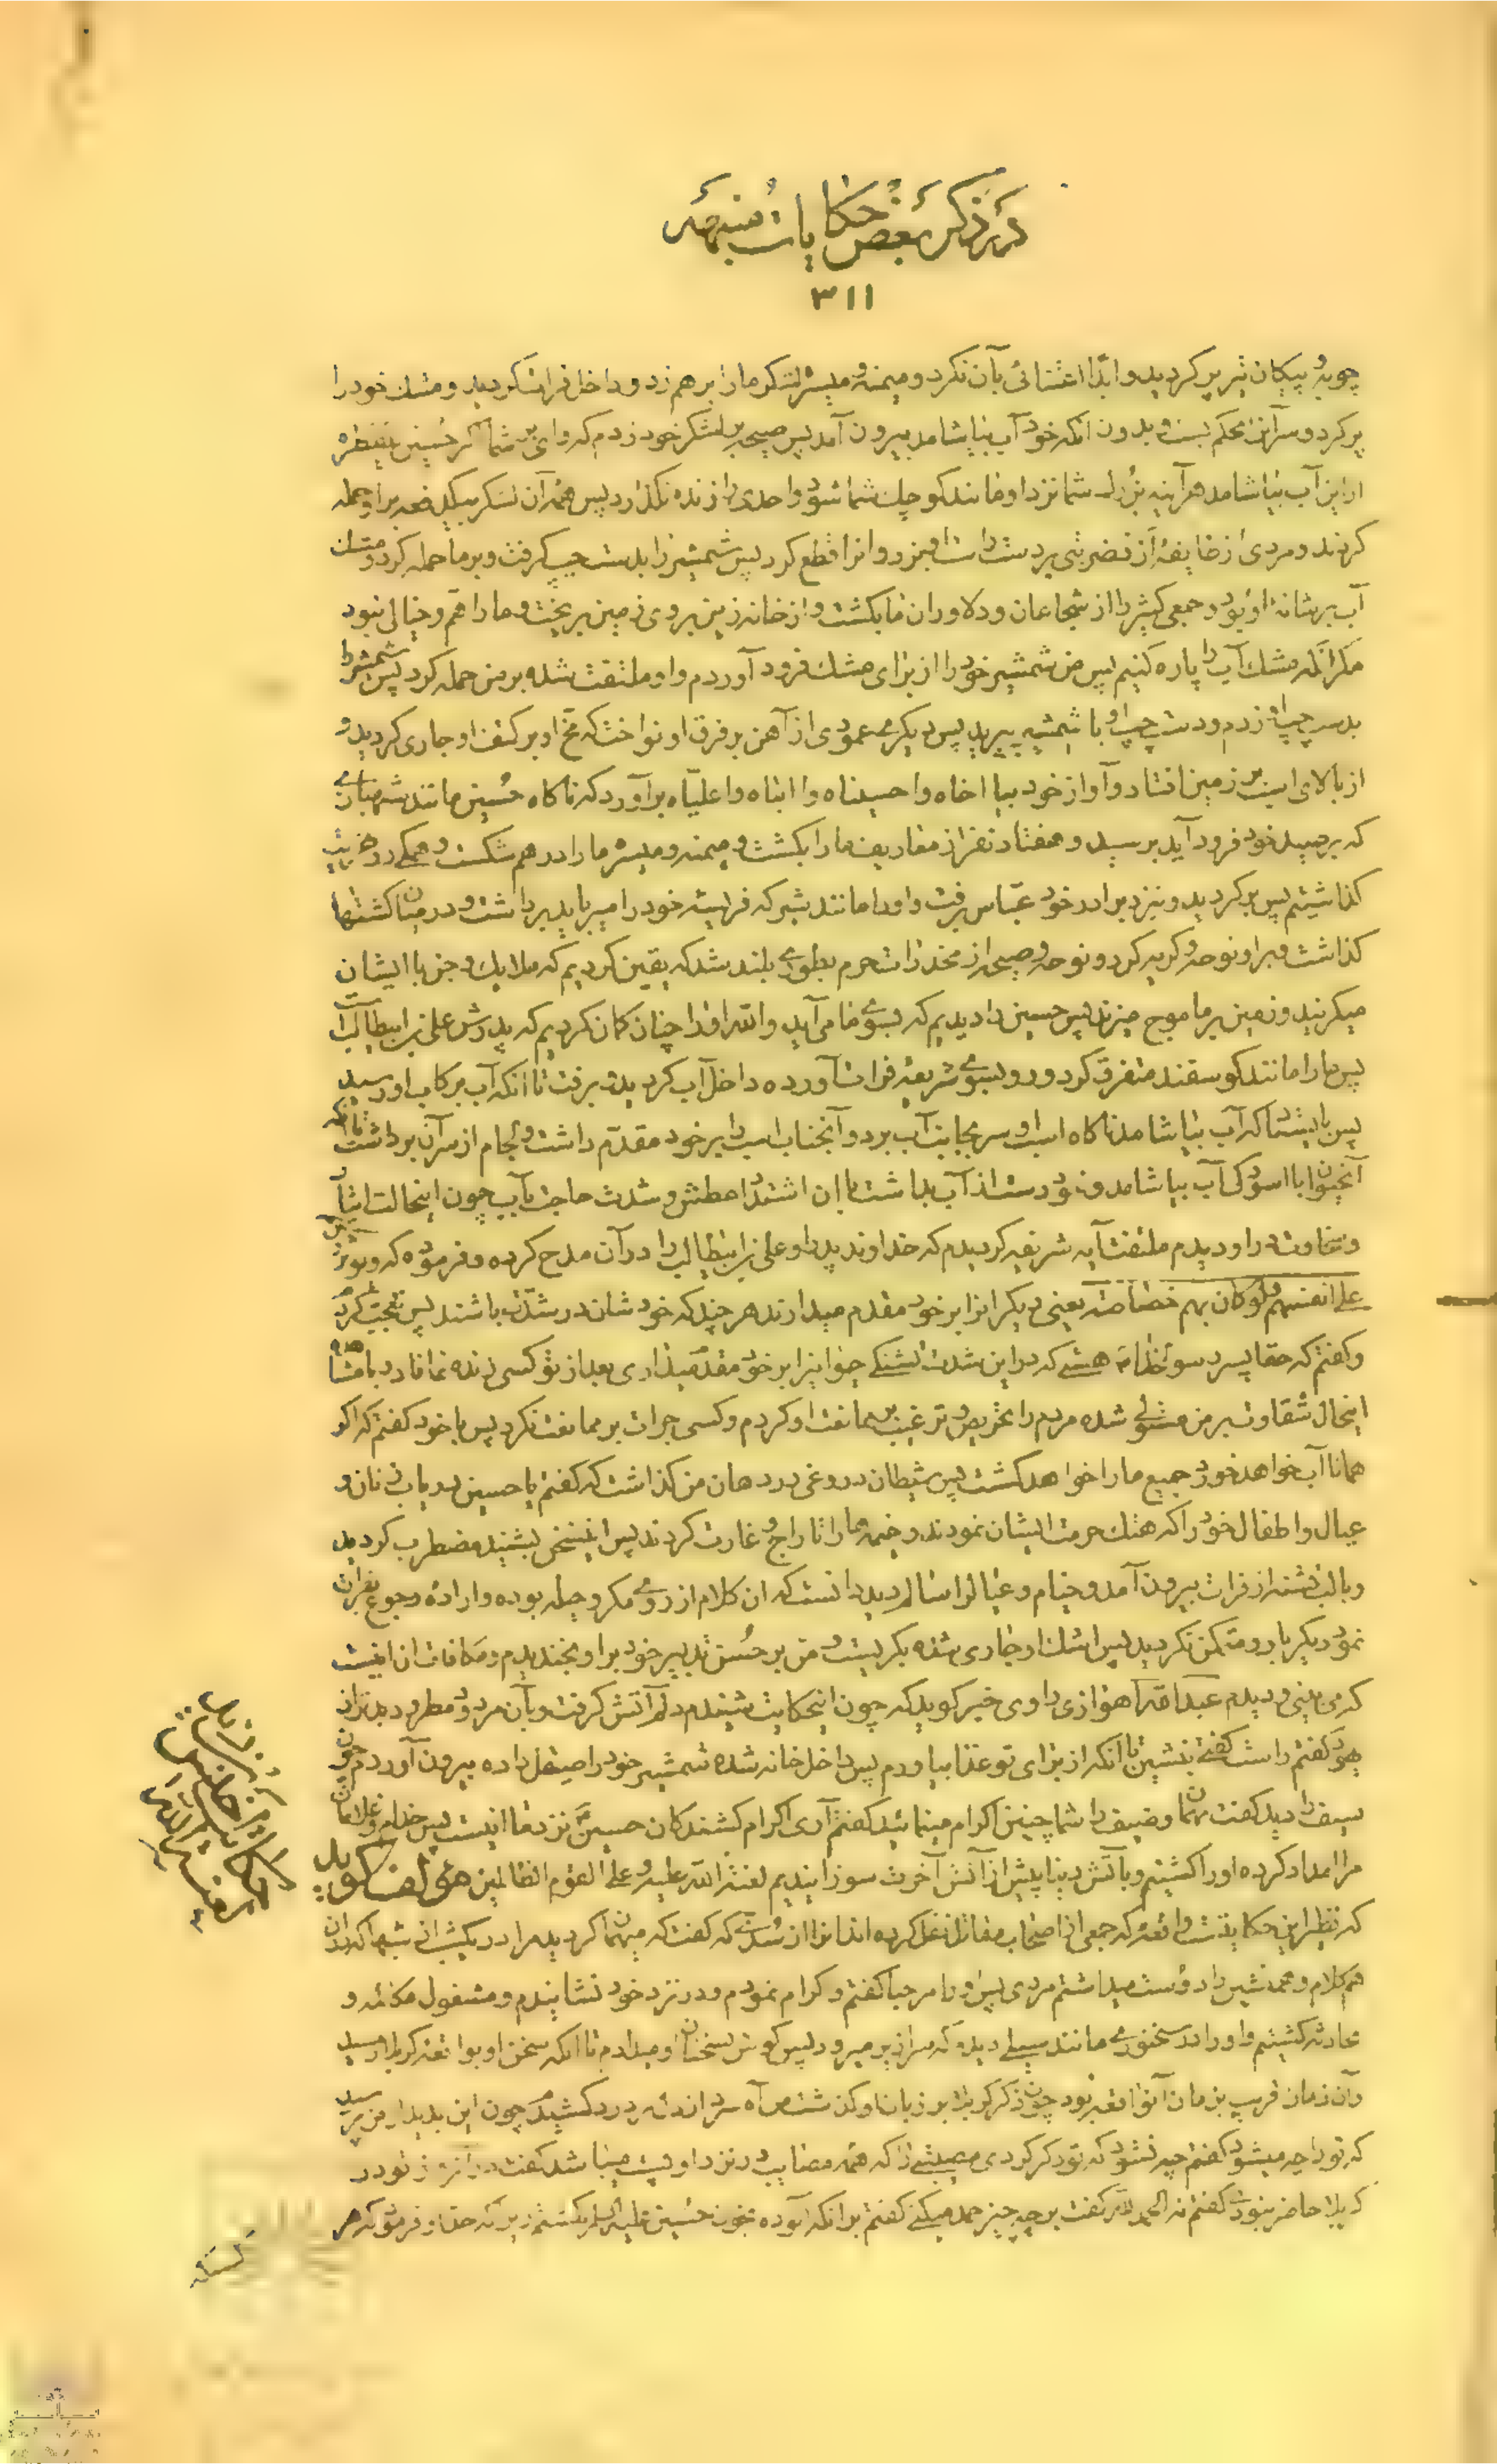 در ذکر بعض حکایات منبهه
۳۱۱
چوبه و پیکان تیر پر گردید و ابدا اعتنائی بآن نکرد و میمنه و میسره لشکر ما را برهم زد و داخل فرات گردید و مشک خود را
پر کرد و سر آنرا محکم بست و بدون آنکه خود آب بیاشامد بیرون آمد پس صیحه بر لشکر خود زدم که وای بر شما اگر حسین قطره
از این آب بیاشامد هرآینه بزرگ شما نزد او مانند کوچک شما شود و احدی را زنده نگذارد پس همه آن لشکر بیکدفعه بر او حمله
کردند و مردی از طایفه ازد ضربتی بر دست راست او بزد و آنرا قطع کرد پس شمشیر را بدست چپ گرفت و بر ما حمله کرد و مشک
آب بر شانه او بود و جمعی کثیر را از شجاعان و دلاوران ما بکشت و از خانه زین بروی زمین بریخت و ما را هم و خیالی نبود
مگر آنکه مشک آب را پاره کنیم پس من شمشیر خود را از برای مشک فرود آوردم و او ملتفت شده بر من حمله کرد پس شمشیر را
بدست چپ او زدم و دست چپ او با شمشیر بپرید پس دیگری عمودی از آهن بر فرق او نواخت که مخ او بر کتف او جاری گردید و
از بالای اسب بر زمین افتاد و آواز خود بیا اخاه وا حسیناه وا ابتاه وا علیاه برآورد که ناگاه حسین مانند شهبازی
که بر صید خود فرود آید برسید و هفتاد نفر از معاریف ما را بکشت و میمنه و میسره ما را درهم شکست و همگی رو بهزیمت
گذاشتیم پس برگردید و بنزد برادر خود عباس برفت و او را مانند شیر که فریسه خود را میرباید برداشت و در میان کشتها
گذاشت و بر او نوحه و گریه کرد و نوحه و صیحه از مخدرات حرم بطوری بلند شد که یقین کردیم که ملایک و جن با ایشان
میگریند و زمین بر ما موج میزند پس حسین را دیدیم که بسوی ما می‌آید والله او را چنان گمان کردیم که پدرش علی بن ابیطالب است
پس ما را مانند گوسفند متفرق کرد و رو بسوی شریعه فرات آورده داخل آب گردید و برفت تا آنکه آب برکاب او رسید
پس بایستاد که آب بیاشامد ناگاه اسب او سر بجانب آب برد و آنجناب اسب را بر خود مقدم داشت و لجام از سر آن برداشت تا آنکه
آنحیوان با آسودگی آب بیاشامد و خود دست از آب بداشت با آن اشتداد عطش و شدت حاجت بآب چون اینحالت ایثار
و سخاوت را از او دیدم ملتفت آیه شریفه گردیدم که خداوند پدر او علی بن ابیطالب را در آن مدح کرده و فرموده که و یؤثرون
علی انفسهم و لو کان بهم خصاصة یعنی دیگرانرا بر خود مقدم میدارند هر چند که خودشان در شدت باشند پس تعجب کردم
و گفتم که حقا پسر رسول خدا هستی که در این شدت تشنگی حیوانرا بر خود مقدم میداری بعد از تو کسی زنده نماناد و با مشاهده
اینحال شقاوت بر من مستولی شده مردم را تحریص و ترغیب بر ممانعت او کردم و کسی جرات بر ممانعت نکرد پس با خود گفتم که اگر
همانا آب خواهد خورد جمیع ما را خواهد کشت پس شیطان دروغی در دهان من گذاشت که گفتم یا حسین دریاب زنان و
عیال و اطفال خود را که هتک حرمت ایشان نمودند و خیمه‌ها را تاراج و غارت کردند پس این سخن بشنید مضطرب گردید
و با لب تشنه از فرات بیرون آمد و خیام و عیال را سالم دید دانست که آن کلام از روی مکر و حیله بوده و اراده رجوع بفرات
نمود دیگر بار و متمکن نگردید پس اشک او جاری شده بگریست و من بر حسن تدبیر خود بر او بخندیدم و مکافات آن اینست
که می‌بینی و دیدم عبدالله اهوازی راوی خبر گوید که چون اینحکایت شنیدم دلم آتش گرفت و بآن مردود مطرود بدتر از
یهود گفتم راست گفتی بنشین تا آنکه از برای تو غذا بیاورم پس داخل خانه شده شمشیر خود را صیقل داده بیرون آوردم چون
سیف را دید گفت مهمان و ضیف را شما چنین اکرام مینمائید گفتم آری اکرام کشندگان حسین نزد ما اینست پس خدام و غلامان
مرا امداد کرده او را کشتیم و بآتش دنیا پیش از آتش آخرت سوزانیدیم لعنة الله علیه و علی القوم الظالمین مؤلف گوید
که نظیر این حکایتست واقعه که جمعی از اصحاب مقاتل نقل کرده‌اند آنرا از سدی که گفت که مهمان کردید مرا در یک شبی از شبها که
همکلام و همنشین را دوست میداشتم مردی پس او را مرحبا گفتم و اکرام نمودم و در نزد خود نشانیدم و مشغول مکالمه و
محادثه گشتیم و او را در سخنوری مانند سیلی دیدم که سرازیر میرود پس گوش بسخنان او میدادم تا آنکه سخن او بواقعه کربلا رسید
و آن زمان قریب بزمان آنواقعه بود چون ذکر کربلا بر زبان او گذشت من آه سردی از دل پر درد کشیدم چون این بدید از من پرسید
که تو را چه میشود گفتم چه نشود که تو ذکر کردی مصیبتی را که همه مصایب در نزد او پست میباشد گفت در آنروز تو در
کربلا حاضر نبودی گفتم نه الحمد لله گفت بر چه چیز حمد میکنی گفتم بر آنکه آلوده بخون حسین علیه السلام نگشتم زیرا که جد او فرموده که هر